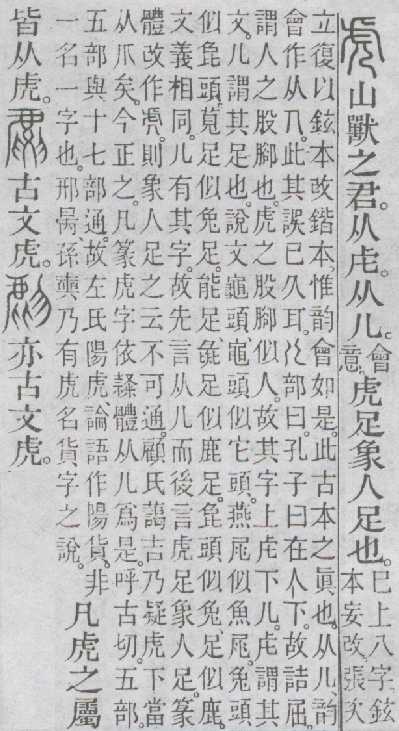 虎山獸之君。从虍。从儿。會意。虎足象人足也。巳上八字鉉
本妄改張次
立復以鉉本改鍇本。惟韵會如是。此古本之眞也。从儿。韵
會作从几。此其誤已久耳。儿部曰。孔子曰在人下。故詰屈。
謂人之股腳也。虎之股腳似人。故其字上虍下儿。虍謂其
文。儿謂其足也。說文龜頭、黽頭似它頭。燕𡱝似魚𡱝。兔頭
似㲋頭。莧足似兔足。能足、㲋足似鹿足。㲋頭似兔足似鹿。
文義相同。儿有其字。故先言从儿而後言虎足象人足。篆
體改作。則象人足之云不可通。顧氏藹吉乃疑虎下當
从爪矣。今正之。凡篆虎字依隸體从儿爲是。呼古切。五部。
五部與十七部通。故左氏陽虎論語作陽貨。非
一名一字也。邢昺孫奭乃有虎名貨字之說。
凡虎之屬
皆从虎。古文虎。亦古文虎。